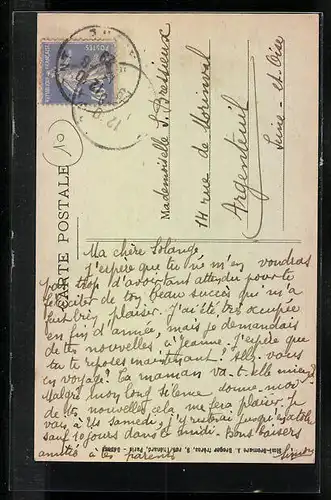 CARTE POSTALE
10
POSTES
Mademoiselle S. Bressieux
14 rue de
Argenteuil
Seine-et-Oise
Ma chère Solange
J'espère que tu ne m'en voudras
pas trop d'avoir tant attendu pour te
féliciter de ton beau succès qui m'a
fait bien plaisir. J'ai été très occupée
en fin d'année, mais je demandais
de tes nouvelles à Jeanne. J'espère que
tu te reposes maintenant! Allez-vous
en voyage? Ta maman va-t-elle mieux?
Malgré mon long silence donne-moi
de tes nouvelles cela me fera plaisir. Je
vais à samedi, j'y resterai jusqu'
sauf 10 jours dans le midi. Bons baisers
amitié à tes parents Simone